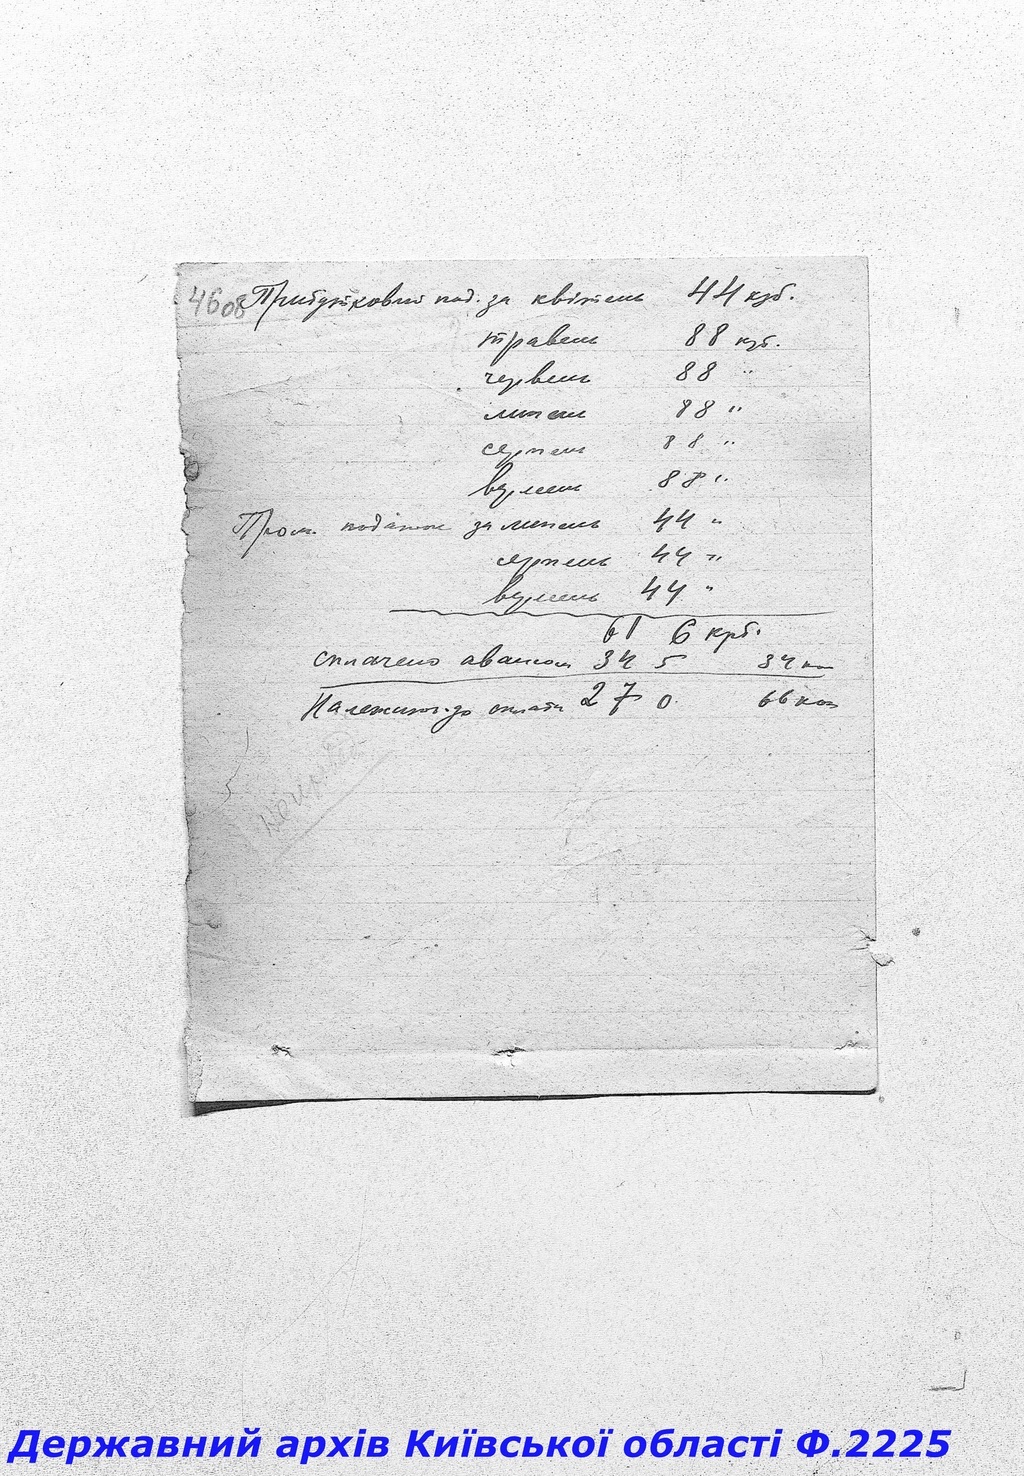 4608 Прибутковий под. за квітень 44 крб.
травень 88 крб.
червень 88 "
липень 88 "
серпень 88 "
вересень 88 "
Пром. податок за липень 44 "
серпень 44 "
вересень 44 "
616 крб.
сплачено авансом 345 34 коп
Належить до оплати 270 66 коп
Державний архів Київської області Ф.2225